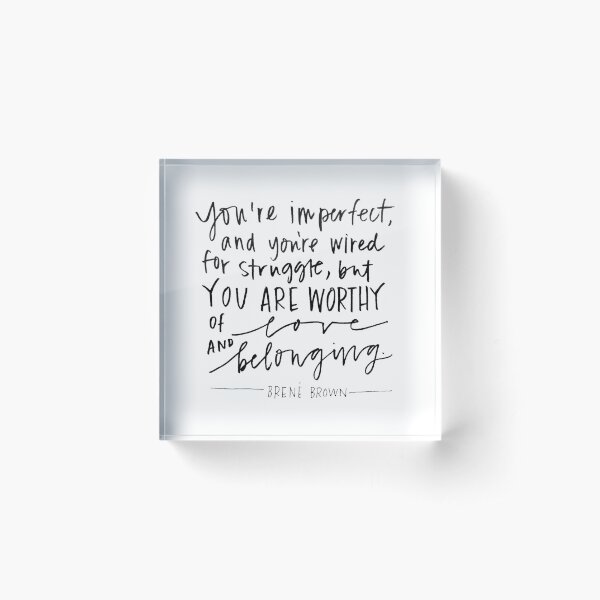 You're imperfect,
and you're wired
for struggle, but
YOU ARE WORTHY
of love
AND belonging.
BRENÉ BROWN